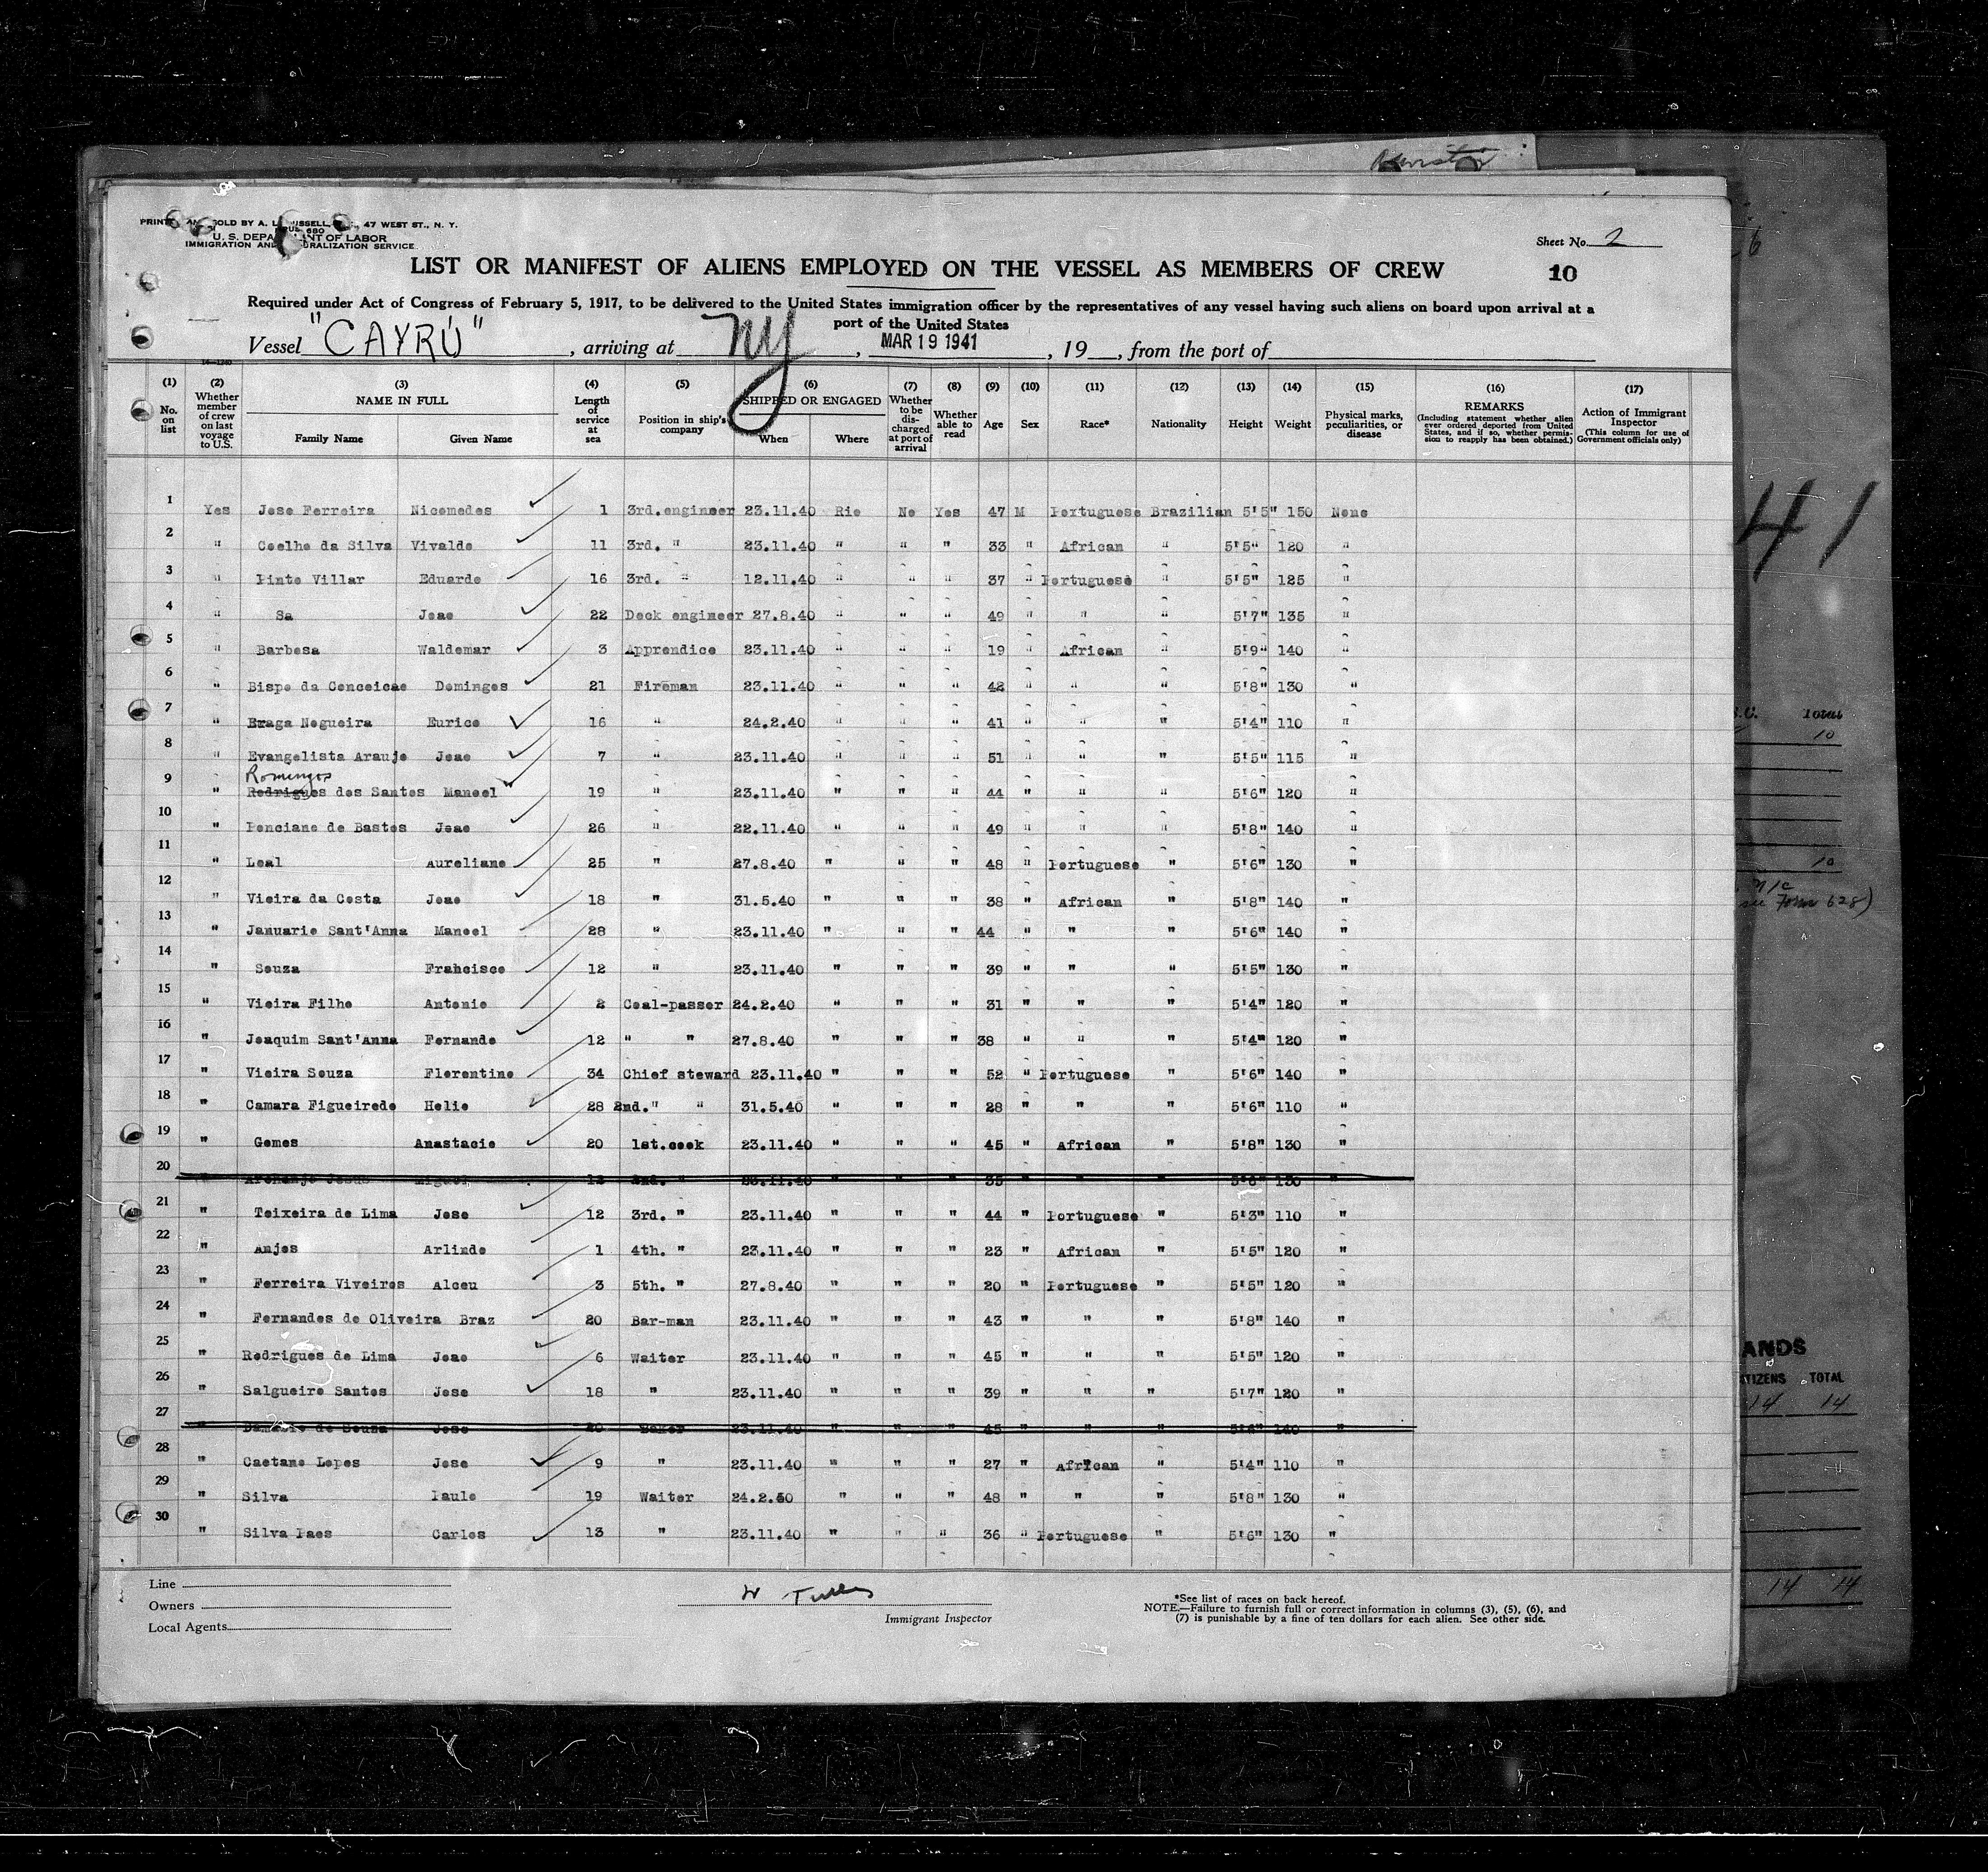 PRINTED AND SOLD BY A. L. RUSSELL, 47 WEST ST., N. Y.
U. S. DEPARTMENT OF LABOR
IMMIGRATION AND NATURALIZATION SERVICE
Sheet No. 2
LIST OR MANIFEST OF ALIENS EMPLOYED ON THE VESSEL AS MEMBERS OF CREW
10
Required under Act of Congress of February 5, 1917, to be delivered to the United States immigration officer by the representatives of any vessel having such aliens on board upon arrival at a
port of the United States
Vessel "CAYRÚ", arriving at NY, MAR 19 1941, 19__, from the port of
(1) No. on list (2) Whether member of crew on last voyage to U.S. (3) NAME IN FULL Family Name Given Name (4) Length of service at sea (5) Position in ship's company (6) SHIPPED OR ENGAGED When Where (7) Whether to be discharged at port of arrival (8) Whether able to read (9) Age (10) Sex (11) Race* (12) Nationality (13) Height (14) Weight (15) Physical marks, peculiarities, or disease (16) REMARKS (Including statement whether alien ever ordered deported from United States, and if so, whether permission to reapply has been obtained.) (17) Action of Immigrant Inspector (This column for use of Government officials only)
1 Yes Jose Ferreira Nicomedes 1 3rd.engineer 23.11.40 Rio No Yes 47 M Portuguese Brazilian 5'5" 150 None
2 " Coelho da Silva Vivaldo 11 3rd. " 23.11.40 " " " 33 " African " 5'5" 120 "
3 " Pinto Villar Eduardo 16 3rd. " 12.11.40 " " " 37 " Portuguese " 5'5" 125 "
4 " Sa Joao 22 Deck engineer 27.8.40 " " " 49 " " " 5'7" 135 "
5 " Barbosa Waldemar 3 Apprendice 23.11.40 " " " 19 " African " 5'9" 140 "
6 " Bispo da Conceicao Domingos 21 Fireman 23.11.40 " " " 42 " " " 5'8" 130 "
7 " Braga Nogueira Eurico 16 " 24.2.40 " " " 41 " " " 5'4" 110 "
8 " Evangelista Araujo Joao 7 " 23.11.40 " " " 51 " " " 5'5" 115 "
Romingos
9 " Rodrigues dos Santos Manoel 19 " 23.11.40 " " " 44 " " " 5'6" 120 "
10 " Ponciano de Bastos Joao 26 " 22.11.40 " " " 49 " " " 5'8" 140 "
11 " Leal Aureliano 25 " 27.8.40 " " " 48 " Portuguese " 5'6" 130 "
12 " Vieira da Costa Joao 18 " 31.5.40 " " " 38 " African " 5'8" 140 "
13 " Januario Sant'Anna Manoel 28 " 23.11.40 " " " 44 " " " 5'6" 140 "
14 " Souza Francisco 12 " 23.11.40 " " " 39 " " " 5'5" 130 "
15 " Vieira Filho Antonio 2 Coal-passer 24.2.40 " " " 31 " " " 5'4" 120 "
16 " Joaquim Sant'Anna Fernando 12 " " 27.8.40 " " " 38 " " " 5'4" 120 "
17 " Vieira Souza Florentino 34 Chief steward 23.11.40 " " " 52 " Portuguese " 5'6" 140 "
18 " Camara Figueiredo Helio 28 2nd." " 31.5.40 " " " 28 " " " 5'6" 110 "
19 " Gomes Anastacio 20 1st.cook 23.11.40 " " " 45 " African " 5'8" 130 "
20 " Archanjo Jesus Miguel 12 2nd. " 23.11.40 " " " 35 " " " 5'6" 130 "
21 " Teixeira de Lima Jose 12 3rd. " 23.11.40 " " " 44 " Portuguese " 5'3" 110 "
22 " Anjos Arlindo 1 4th. " 23.11.40 " " " 23 " African " 5'5" 120 "
23 " Ferreira Viveiros Alceu 3 5th. " 27.8.40 " " " 20 " Portuguese " 5'5" 120 "
24 " Fernandes de Oliveira Braz 20 Bar-man 23.11.40 " " " 43 " " " 5'8" 140 "
25 " Rodrigues de Lima Joao 6 Waiter 23.11.40 " " " 45 " " " 5'5" 120 "
26 " Salgueiro Santos Jose 18 " 23.11.40 " " " 39 " " " 5'7" 120 "
27 " de Souza Jose 20 Baker 23.11.40 " " " 45 " " " 140 "
28 " Caetano Lopes Jose 9 " 23.11.40 " " " 27 " African " 5'4" 110 "
29 " Silva Paulo 19 Waiter 24.2.50 " " " 48 " " " 5'8" 130 "
30 " Silva Paes Carlos 13 " 23.11.40 " " " 36 " Portuguese " 5'6" 130 "
Line
Owners
Local Agents
Immigrant Inspector
*See list of races on back hereof.
NOTE.—Failure to furnish full or correct information in columns (3), (5), (6), and
(7) is punishable by a fine of ten dollars for each alien. See other side.
41
Total
10
10
n/c
see Form 628)
ANDS
TIZENS TOTAL
14 14
14 14